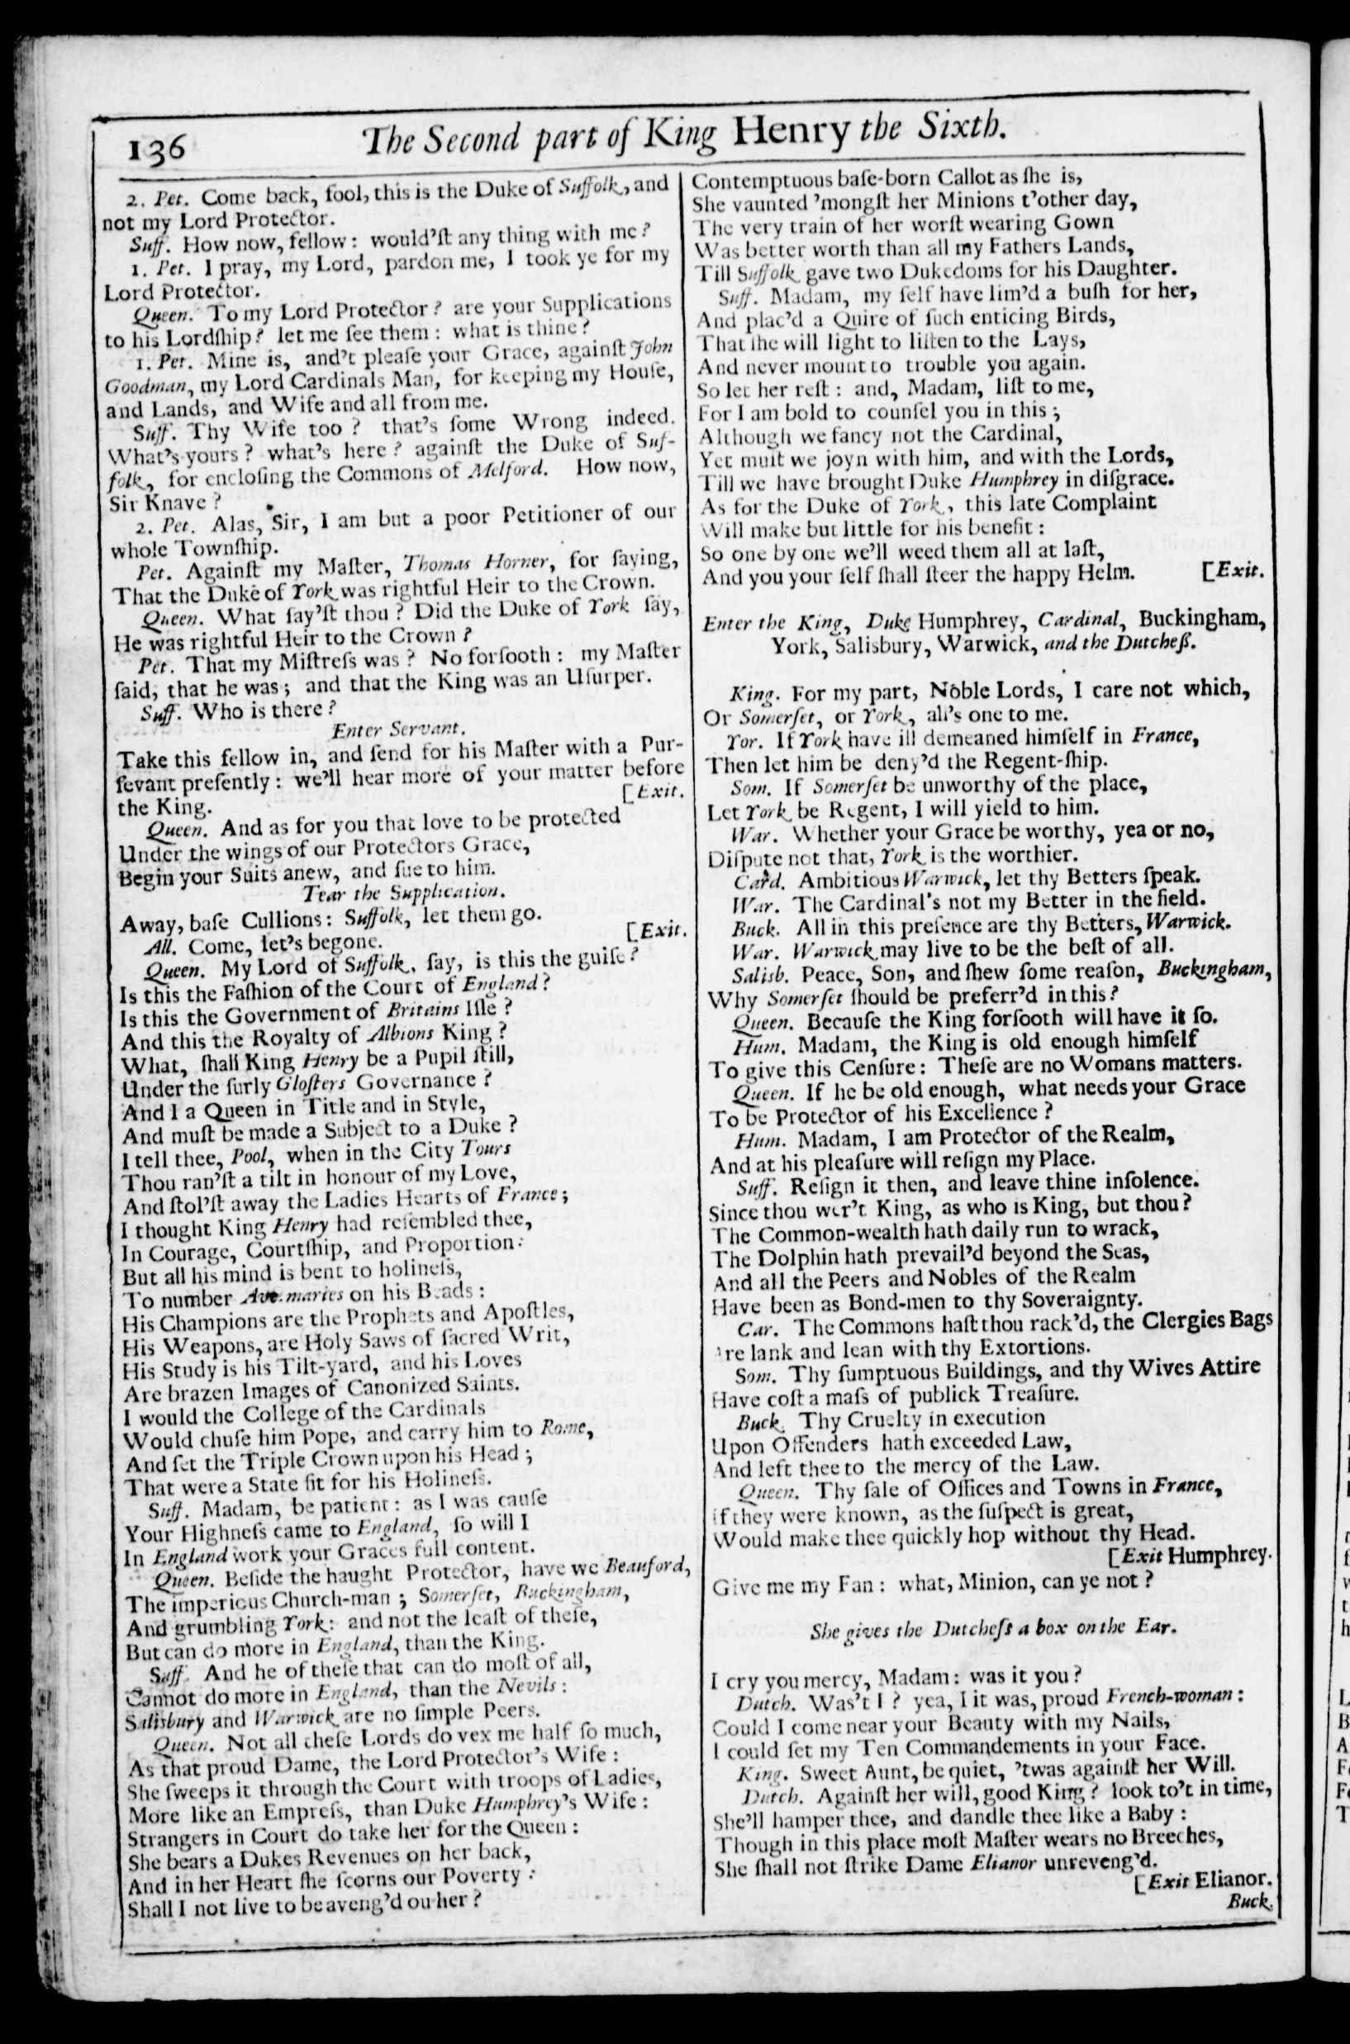 136
The Second part of King Henry the Sixth.
2. Pet. Come back, fool, this is the Duke of Suffolk, and
not my Lord Protector.
Suff. How now, fellow: would'ſt any thing with me?
1. Pet. I pray, my Lord, pardon me, I took ye for my
Lord Protector.
Queen. To my Lord Protector? are your Supplications
to his Lordſhip? let me ſee them: what is thine?
1. Pet. Mine is, and't pleaſe your Grace, againſt John
Goodman, my Lord Cardinals Man, for keeping my Houſe,
and Lands, and Wife and all from me.
Suff. Thy Wife too? that's ſome Wrong indeed.
What's yours? what's here? againſt the Duke of Suf-
folk, for encloſing the Commons of Melford. How now,
Sir Knave?
2. Pet. Alas, Sir, I am but a poor Petitioner of our
whole Townſhip.
Pet. Againſt my Maſter, Thomas Horner, for ſaying,
That the Duke of York was rightful Heir to the Crown.
Queen. What ſay'ſt thou? Did the Duke of York ſay,
He was rightful Heir to the Crown?
Pet. That my Miſtreſs was? No forſooth: my Maſter
ſaid, that he was; and that the King was an Uſurper.
Suff. Who is there?
Enter Servant.
Take this fellow in, and ſend for his Maſter with a Pur-
ſevant preſently: we'll hear more of your matter before
the King. [Exit.
Queen. And as for you that love to be protected
Under the wings of our Protectors Grace,
Begin your Suits anew, and ſue to him.
Tear the Supplication.
Away, baſe Cullions: Suffolk, let them go.
All. Come, let's begone. [Exit.
Queen. My Lord of Suffolk, ſay, is this the guiſe?
Is this the Faſhion of the Court of England?
Is this the Government of Britains Iſle?
And this the Royalty of Albions King?
What, ſhall King Henry be a Pupil ſtill,
Under the ſurly Gloſters Governance?
And I a Queen in Title and in Style,
And muſt be made a Subject to a Duke?
I tell thee, Pool, when in the City Tours
Thou ran'ſt a tilt in honour of my Love,
And ſtol'ſt away the Ladies Hearts of France;
I thought King Henry had reſembled thee,
In Courage, Courtſhip, and Proportion:
But all his mind is bent to holineſs,
To number Ave-maries on his Beads:
His Champions are the Prophets and Apoſtles,
His Weapons, are Holy Saws of ſacred Writ,
His Study is his Tilt-yard, and his Loves
Are brazen Images of Canonized Saints.
I would the College of the Cardinals
Would chuſe him Pope, and carry him to Rome,
And ſet the Triple Crown upon his Head;
That were a State fit for his Holineſs.
Suff. Madam, be patient: as I was cauſe
Your Highneſs came to England, ſo will I
In England work your Graces full content.
Queen. Beſide the haught Protector, have we Beauford,
The imperious Church-man; Somerſet, Buckingham,
And grumbling York: and not the leaſt of theſe,
But can do more in England, than the King.
Suff. And he of theſe that can do moſt of all,
Cannot do more in England, than the Nevils:
Salisbury and Warwick are no ſimple Peers.
Queen. Not all theſe Lords do vex me half ſo much,
As that proud Dame, the Lord Protector's Wife:
She ſweeps it through the Court with troops of Ladies,
More like an Empreſs, than Duke Humphrey's Wife:
Strangers in Court do take her for the Queen:
She bears a Dukes Revenues on her back,
And in her Heart ſhe ſcorns our Poverty:
Shall I not live to be aveng'd ou her?
Contemptuous baſe-born Callot as ſhe is,
She vaunted 'mongſt her Minions t'other day,
The very train of her worſt wearing Gown
Was better worth than all my Fathers Lands,
Till Suffolk gave two Dukedoms for his Daughter.
Suff. Madam, my ſelf have lim'd a buſh for her,
And plac'd a Quire of ſuch enticing Birds,
That ſhe will light to liſten to the Lays,
And never mount to trouble you again.
So let her reſt: and, Madam, liſt to me,
For I am bold to counſel you in this;
Although we fancy not the Cardinal,
Yet muſt we joyn with him, and with the Lords,
Till we have brought Duke Humphrey in diſgrace.
As for the Duke of York, this late Complaint
Will make but little for his benefit:
So one by one we'll weed them all at laſt,
And you your ſelf ſhall ſteer the happy Helm. [Exit.
Enter the King, Duke Humphrey, Cardinal, Buckingham,
York, Salisbury, Warwick, and the Dutcheß.
King. For my part, Noble Lords, I care not which,
Or Somerſet, or York, all's one to me.
Yor. If York have ill demeaned himſelf in France,
Then let him be deny'd the Regent-ſhip.
Som. If Somerſet be unworthy of the place,
Let York be Regent, I will yield to him.
War. Whether your Grace be worthy, yea or no,
Diſpute not that, York is the worthier.
Card. Ambitious Warwick, let thy Betters ſpeak.
War. The Cardinal's not my Better in the field.
Buck. All in this preſence are thy Betters, Warwick.
War. Warwick may live to be the beſt of all.
Salisb. Peace, Son, and ſhew ſome reaſon, Buckingham,
Why Somerſet ſhould be preferr'd in this?
Queen. Becauſe the King forſooth will have it ſo.
Hum. Madam, the King is old enough himſelf
To give this Cenſure: Theſe are no Womans matters.
Queen. If he be old enough, what needs your Grace
To be Protector of his Excellence?
Hum. Madam, I am Protector of the Realm,
And at his pleaſure will reſign my Place.
Suff. Reſign it then, and leave thine inſolence.
Since thou wer't King, as who is King, but thou?
The Common-wealth hath daily run to wrack,
The Dolphin hath prevail'd beyond the Seas,
And all the Peers and Nobles of the Realm
Have been as Bond-men to thy Soveraignty.
Car. The Commons haſt thou rack'd, the Clergies Bags
Are lank and lean with thy Extortions.
Som. Thy ſumptuous Buildings, and thy Wives Attire
Have coſt a maſs of publick Treaſure.
Buck. Thy Cruelty in execution
Upon Offenders hath exceeded Law,
And left thee to the mercy of the Law.
Queen. Thy ſale of Offices and Towns in France,
If they were known, as the ſuſpect is great,
Would make thee quickly hop without thy Head.
[Exit Humphrey.
Give me my Fan: what, Minion, can ye not?
She gives the Dutcheſs a box on the Ear.
I cry you mercy, Madam: was it you?
Dutch. Was't I? yea, I it was, proud French-woman:
Could I come near your Beauty with my Nails,
I could ſet my Ten Commandements in your Face.
King. Sweet Aunt, be quiet, 'twas againſt her Will.
Dutch. Againſt her will, good King? look to't in time,
She'll hamper thee, and dandle thee like a Baby:
Though in this place moſt Maſter wears no Breeches,
She ſhall not ſtrike Dame Elianor unreveng'd.
[Exit Elianor.
Buck.